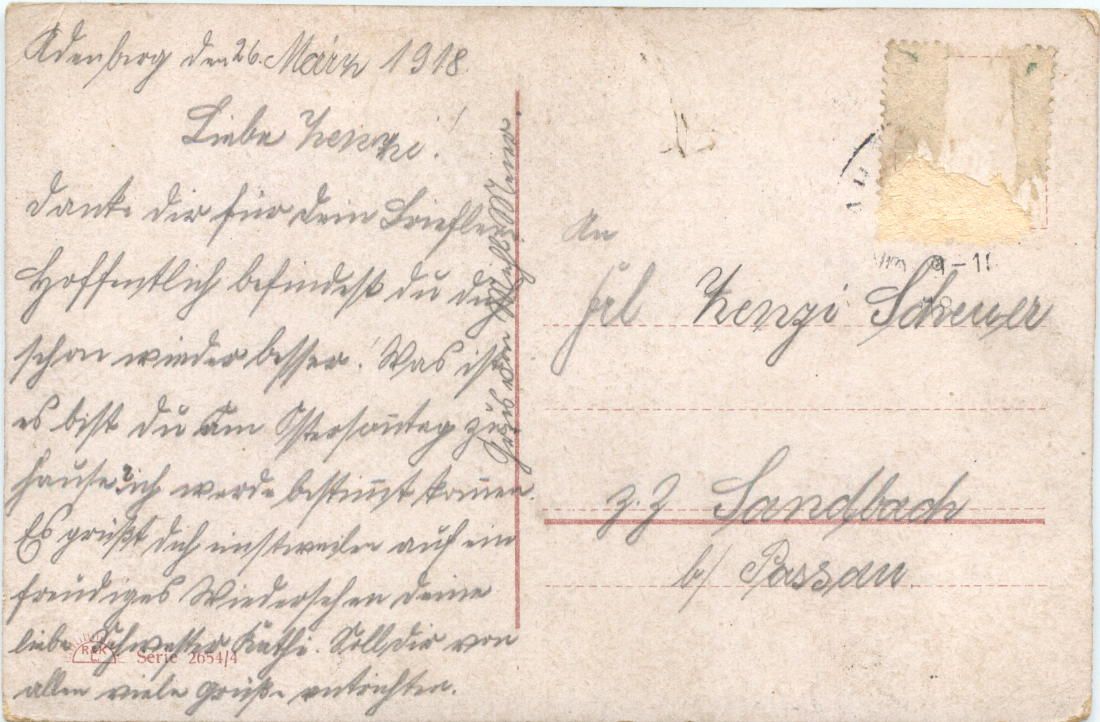 Adenberg den 26. März 1918
Liebe Zenzi!
Danke dir für dein Brieflein
Hoffentlich befindest du dich
schon wieder besser! Was ist
es bist du am Ostersontag zu
hause? ich werde bestimt komen.
Es grüßt dich einstweilen auf ein
freudiges Wiedersehen deine
liebe Schwester Kathi. Soll dir von
allen viele Grüße entrichten.
R&K
Serie 2654/4
An
Frl Zenzi Scheuer
z.Z Sandbach
b/ Passau.
9-1